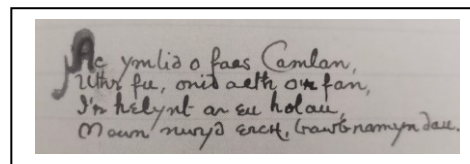 Ac ymlid o faes Camlan,
Uthr fu, onid aeth o'r fan,
I'r helynt ar eu holau,
Mewn nwyd erch, bawb namyn dau.